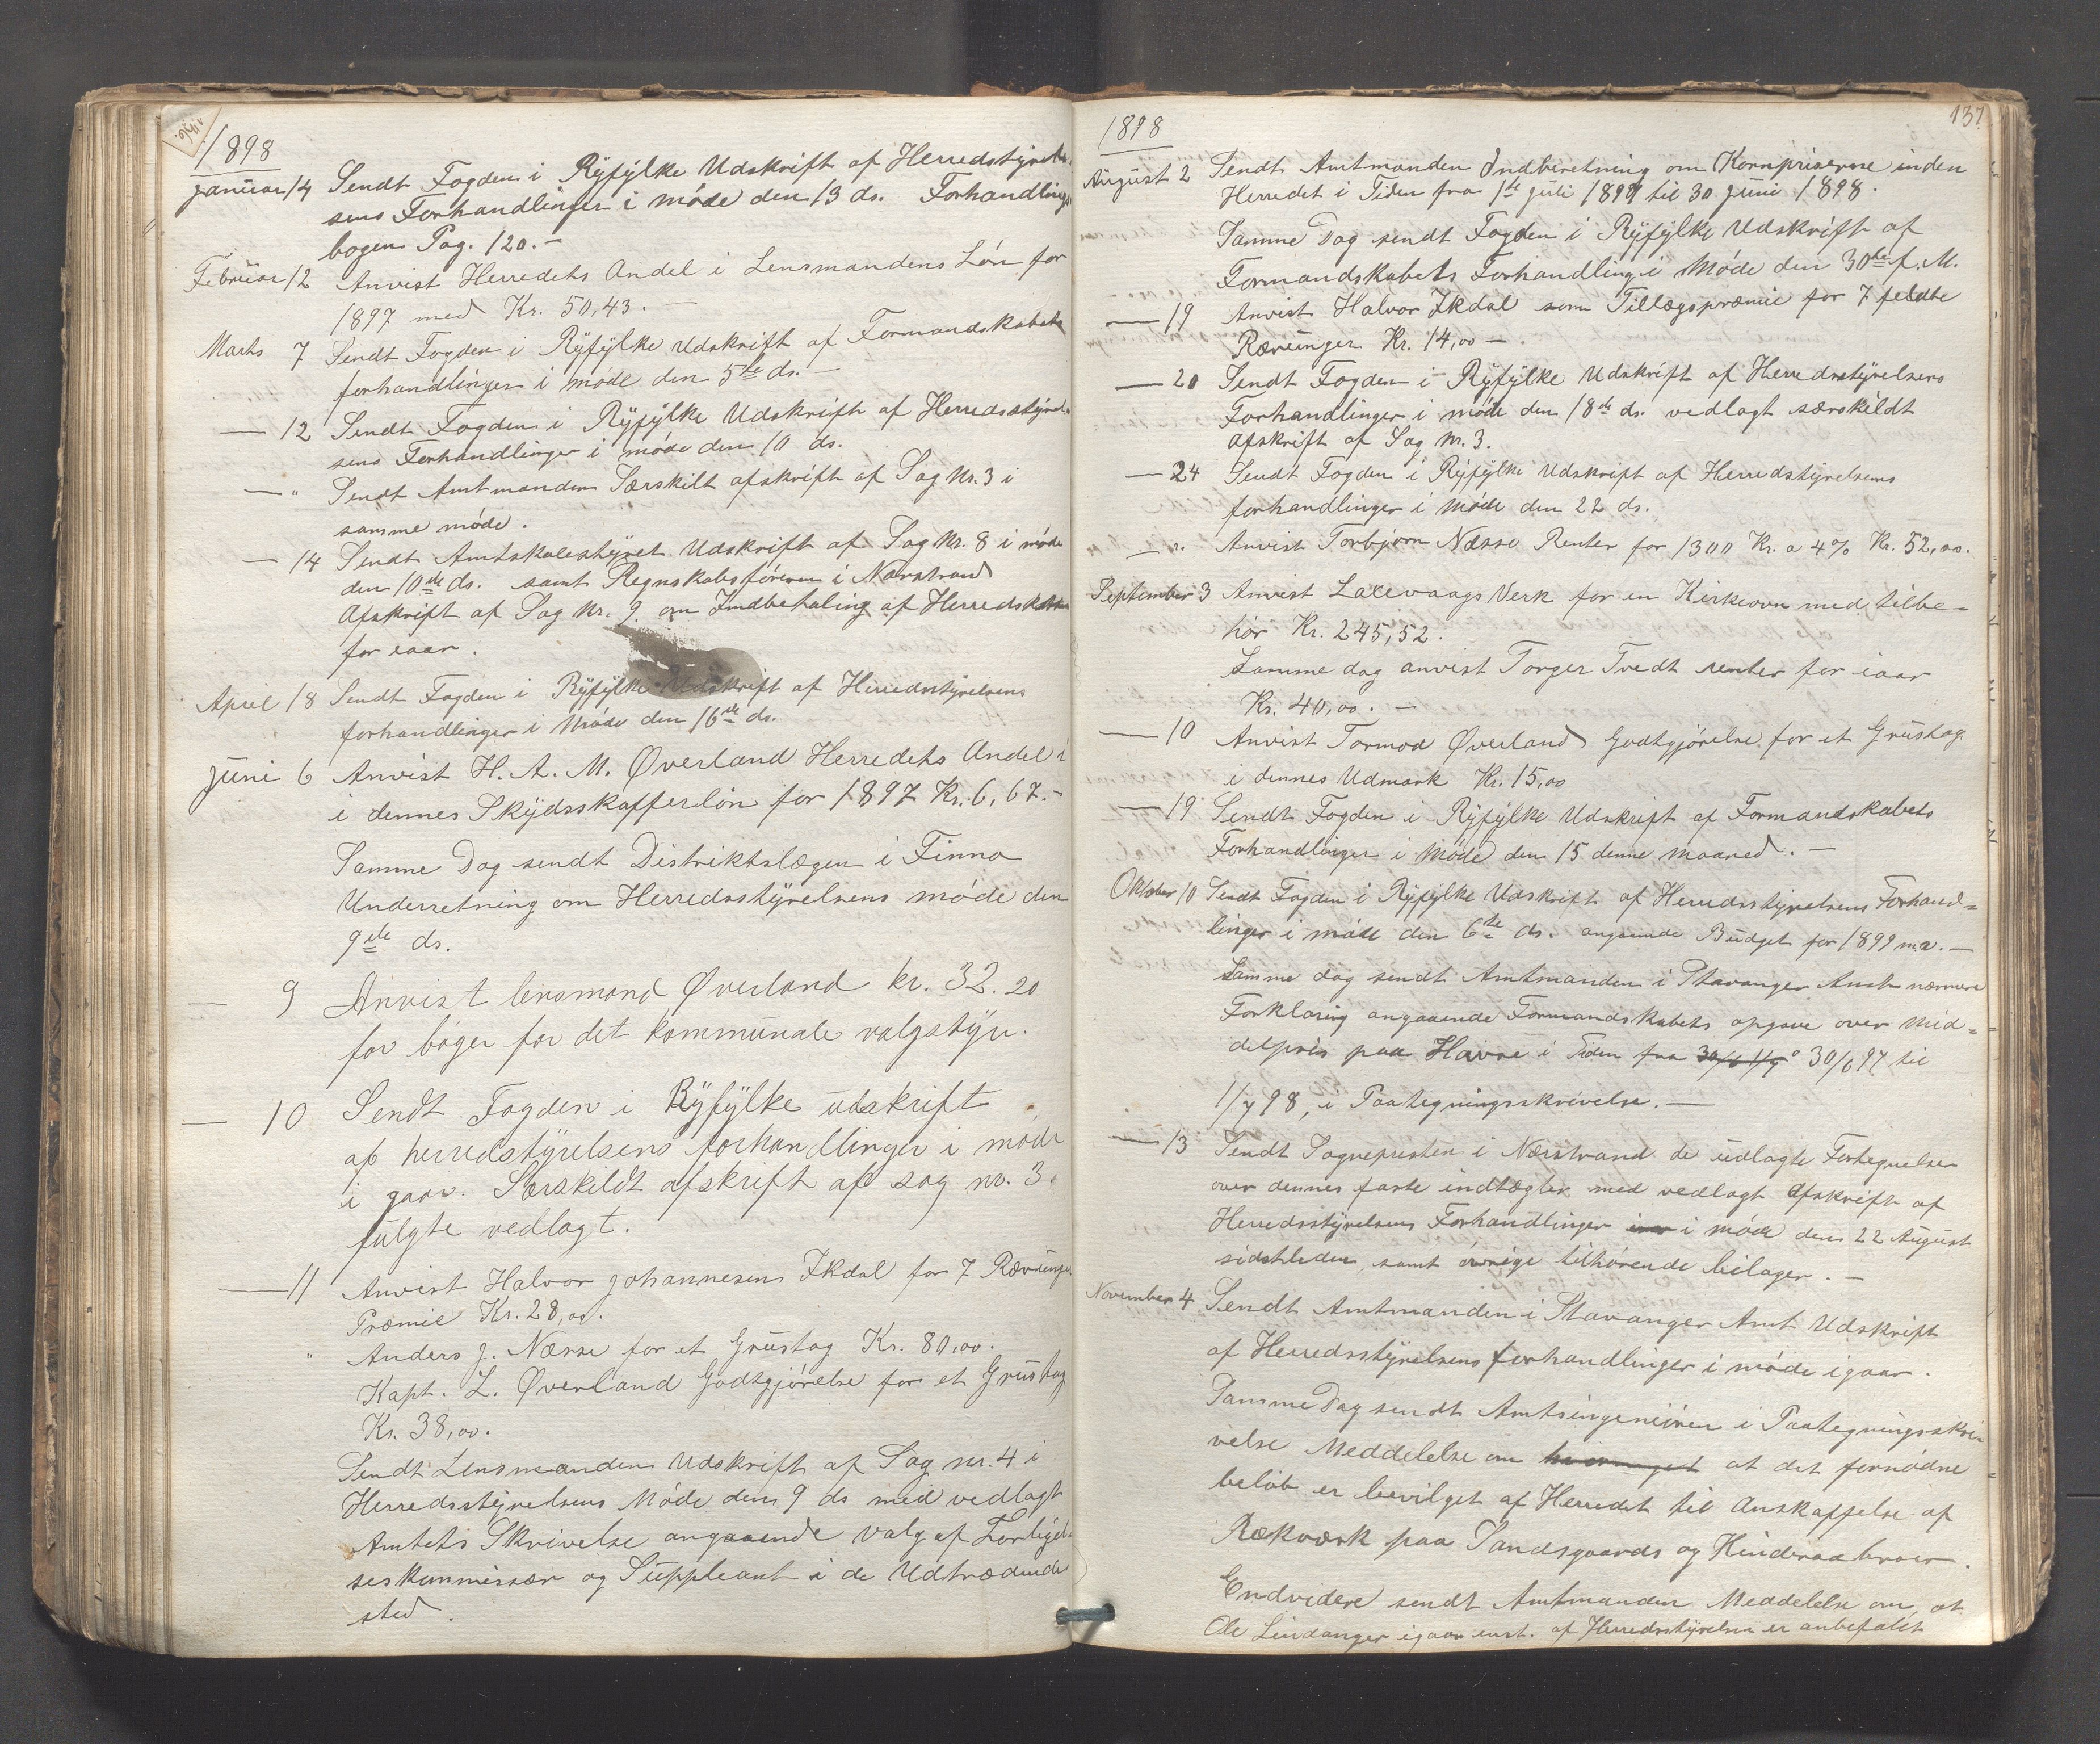 1898
Januar 14 Sendt Fogden i Ryfylke Udskrift af Herredstyrel-
sens Forhandlinger i møde den 13 ds. Forhandlings
bogen Pag. 120.-
Februar 12 Anvist Herredets Andel i Lensmandens Løn for
1897 med Kr. 50,43.-
Marts 7 Sendt Fogden i Ryfylke Udskrift af Formandskabets
forhandlinger i møde den 5te ds. -
— 12 Sendt Fogden i Ryfylke Udskrift af Herredsstyrel-
sens Forhandlinger i møde den 10 ds.
— " Sendt Amtmanden Særskilt afskrift af Sag Nr. 3 i
samme møde.
— 14 Sendt Amtskolestyret Udskrift af Sag Nr. 8 i møde
den 10de ds. samt Regnskabsføreren i Nærstrand
Afskrift af Sag Nr. 9. om Indbetaling af Herredskat
for iaar.
April 18 Sendt Fogden i Ryfylke Udskrift af Herredsstyrelsens
forhandlinger i Møde den 16de ds.
Juni 6 Anvist H. A. M. Øverland Herredets Andel i
i dennes Skydsskafferløn for 1897 Kr. 6,67.-
Samme Dag sendt Distriktslægen i Finnø
Underretning om Herredsstyrelsens møde den
9de ds.
— 9 Anvist lensmand Øverland kr. 32.20
for bøger for det kommunale valgstyr.
— 10 Sendt Fogden i Ryfylke udskrift
af herredstyrelsens forhandlinger i møde
i gaar. Særskildt afskrift af sag nr. 3.
fulgte vedlagt.
— 11 Anvist Halvor Johannesen Ikdal for 7 Rævunger
Præmie Kr. 28,00.
" Anders J. Næsse for et Grustag Kr. 80,00.
Kapt. L. Øverland Godtgjørelse for et Grustag
Kr. 38,00.
Sendt Lensmanden Udskrift af Sag nr. 4 i
Herredsstyrelsens Møde den 9 ds med vedlagt
Amtets Skrivelse angaaende valg af Forligel-
seskommissær og Suppleant i de Udtrædendes
sted.
137
1898
August 2 Sendt Amtmanden Indberetning om Kornpriserne inden
Herredet i Tiden fra 1ste Juli 1897 til 30 Juni 1898.
Samme Dag sendt Fogden i Ryfylke Udskrift af
Formandskabets Forhandling i Møde den 30de f. M.
— 19 Anvist Halvor Ikdal som Tillægspræmie for 7 fældte
Rævunger Kr. 14,00 —
— 20 Sendt Fogden i Ryfylke Udskrift af Herredsstyrelsens
Forhandlinger i møde den 18de ds. vedlagt særskildt
Afskrift af Sag Nr. 3.
— 24 Sendt Fogden i Ryfylke Udskrift af Herredstyrelsens
forhandlinger i Møde den 22 ds.
— " Anvist Torbjørn Næsse Renter for 1300 Kr. a 4% Kr. 52,00.
September 3 Anvist Lalevaags Verk for en Kirkeovn med tilbe-
hør Kr. 245,52.
Samme dag anvist Torger Tvedt renter for iaar
Kr. 40,00. -
— 10 Anvist Tormod Øverland Godtgjørelse for et Grustag
i dennes Udmark Kr. 15,00
— 19 Sendt Fogden i Ryfylke Udskrift af Formandskabets
Forhandlinger i Møde den 15 denne maaned. -
Oktober 10 Sendt Fogden i Ryfylke Udskrift af Herredsstyrelsens Forhand-
linger i møde den 6te ds. angaaende Budget for 1899 m.v. —
Samme dag sendt Amtmanden i Stavanger Amt nærmere
Forklaring angaaende Formandskabets opgave over Mid-
delpris paa Havre i Tiden fra 30/6 97 til
1/7 98, i Paategningsskrivelse. —
— 13 Sendt Sognepresten i Nærstrand de udlagte Fortegnelser
over dennes faste indtægter med vedlagt Afskrift af
Herredsstyrelsens Forhandlinger i møde den 22 August
sidstleden, samt øvrige tilhørende bilager. -
November 4 Sendt Amtmanden i Stavanger Amt Udskrift
af Herredsstyrelsens forhandlinger i møde igaar.
Samme Dag sendt Amtsingeniøren i Paategningsskri-
velse Meddelelse om at det fornødne
beløb er bevilget af Herredet til Anskaffelse af
Rækværk paa Sandsgaards og Hinderaabroer.
Endvidere sendt Amtmanden Meddelelse om at
Ole Lindanger igaar enst. af Herredsstyrelsen er anbefalet